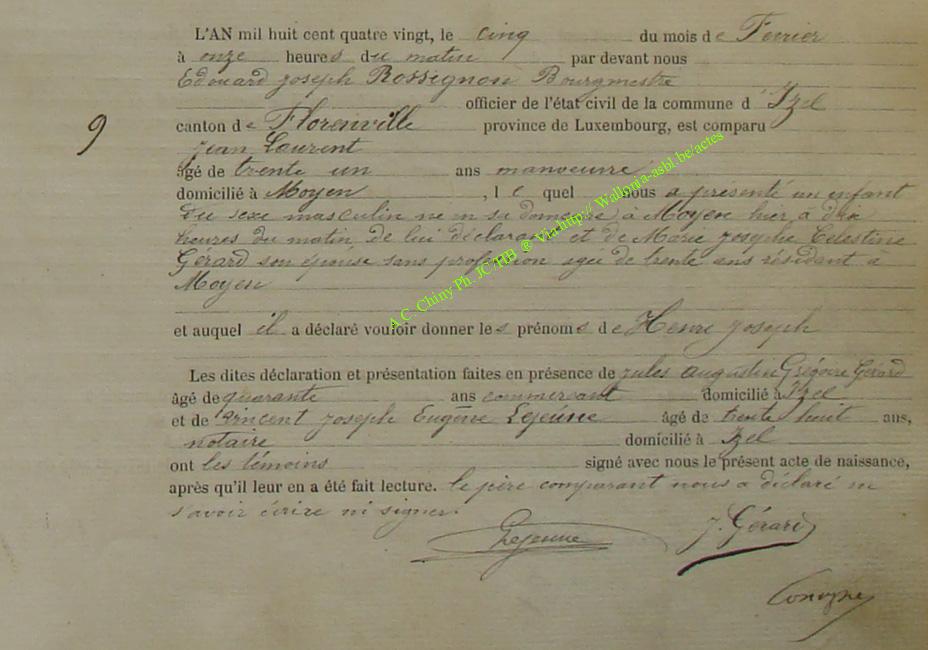 L'AN mil huit cent quatre vingt, le cinq du mois de Fevrier
à onze heures du matin par devant nous
Edouard Joseph Rossignon Bourgmestre
officier de l'état civil de la commune d'Izel
9
canton de Florenville province de Luxembourg, est comparu
Jean Laurent
âgé de trente un ans manoeuvre
domicilié à Moyen, le quel nous a présenté un enfant
du sexe masculin né en sa demeure à Moyen hier à deux
heures du matin, de lui déclarant et de Marie Josephe Célestine
Gérard son épouse sans profession agée de trente ans résidant à
Moyen
et auquel il a déclaré vouloir donner les prénoms de Henri Joseph
Les dites déclaration et présentation faites en présence de Jules Augustin Grégoire Gérard
âgé de quarante ans commercant domicilié à Izel
et de Vincent Joseph Eugène Lejeune âgé de trente huit ans,
notaire domicilié à Izel
ont les témoins signé avec nous le présent acte de naissance,
après qu'il leur en a été fait lecture. le père comparant nous a déclaré ne
savoir écrire ni signer.
Lejeune J. Gérard
A.C. Chiny Ph. JC HB @ Via http:// Wallonia-asbl.be/actes